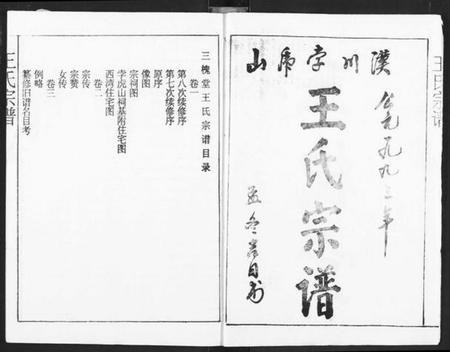 漢川孛虎山
公元一九九三年
王氏宗谱
孟冬
王氏宗譜
三槐堂王氏宗谱目录
卷一
第八次续修序
第七次续修序
原序
像图
宗祠图
孛虎山祠基附住宅图
西湾住宅图
卷二
宗传
宗赞
女传
卷三
例略
纂修旧谱名目考
王氏宗譜